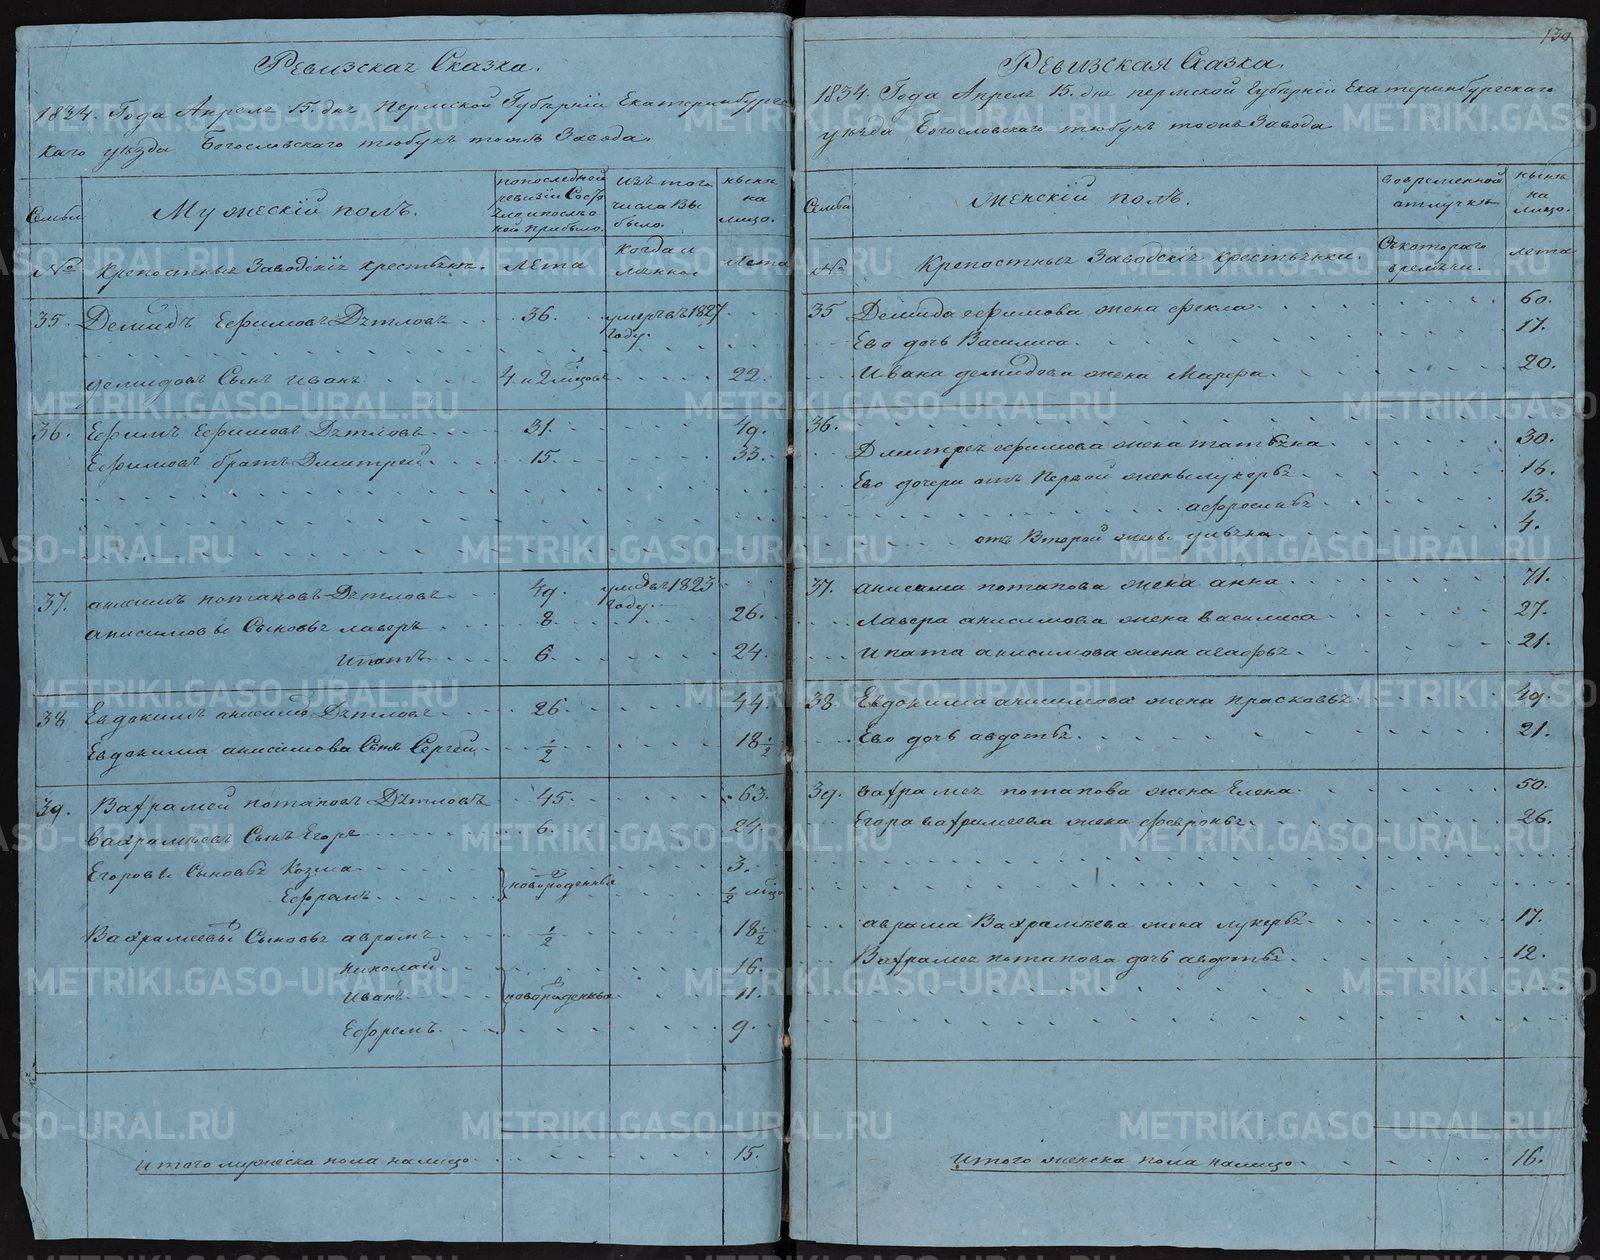 Ревизская Сказка.
1834. Года Апреля 15. дня Пермской Губернiи Екатеринбургс
каго уезда Богословскаго тюбукъ тожъ Завода.
Семьи
Мужескiй полъ.
попоследней
ревизiи Состо
яло ипосле о
ной прибыло.
Изъ того
числа Вы
было.
ныне
на
лицо.
№
крепостные Заводскiе крестьяне.
лета
Когда и
лета
35. Демидъ Ефимовъ Дятловъ 36. умеръ въ 1827
году.
демидовъ Сынъ иванъ 4 и 2 22.
36. Ефимъ Ефимовъ Дятловъ 31. 49.
Ефимовъ братъ Дмитрей 15. 33.
37. анисимъ потаповъ Дятловъ 49. умеръ въ 1823
году.
анисимовы Сыновья лаверъ 8. 26.
ипатъ 6. 24.
38 Евдокимъ анисимовъ Дятловъ 26. 44.
Евдокима анисимова Сынъ Сергей 1/2 18 1/2
39. Вахрамей потаповъ Дятловъ 45. 63.
вахрамеевъ Сынъ Егоръ 6. 24.
Егоровы Сыновья Козма 3.
новорожденные
Ефрамъ 1/2
Вахрамеевы Сыновья аврамъ 1/2 18 1/2
николай 16.
иванъ новорожденные 11.
Ефремъ 9.
итого мужеска пола налицо 15.
130
Ревизская Сказка.
1834. Года Апреля 15. дня пермской Губернiи Екатеринбургскаго
уезда Богословскаго тюбукъ тожъ Завода
Семьи
женскiй полъ.
вовременной
отлучке
ныне
на
лицо.
№
Крепостные Заводскiе крестьянки.
Съкотораго
времяни.
лета
35 Демида ефимова жена фекла 60.
Ево дочь Василиса 17.
Ивана демидова жена Марфа 20.
36.
Дмитрея ефимова жена татьяна 30.
Ево дочери отъ Первой жены лукерья 16.
афросинья 13.
отъ Второй жены ульяна 4.
37. анисима потапова жена анна 71.
Лавера анисимова жена василиса 27.
ипата анисимова жена агафья 21.
38. Евдокима анисимова жена прасковья 49.
Ево дочь авдотья 21.
39. вахрамея потапова жена Елена 50.
Егора вахрамеева жена февронья 26.
аврама Вахрамеева жена лукерья 17.
Вахрамея потапова дочь авдотья 12.
итого женска пола налицо 16.
METRIKI.GASO-URAL.RU